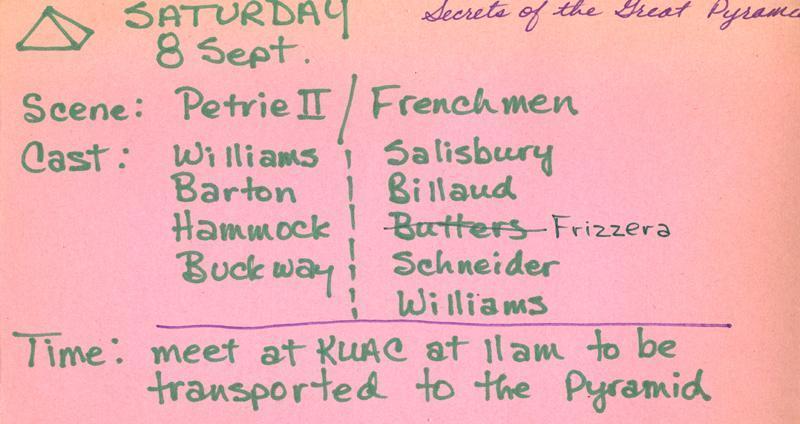 SATURDAY Secrets of the Great Pyramid
8 Sept.
Scene: Petrie II / Frenchmen
Cast: Williams | Salisbury
Barton | Billaud
Hammock | Butters Frizzera
Buckway | Schneider
Williams
Time: meet at KUAC at 11am to be
transported to the Pyramid